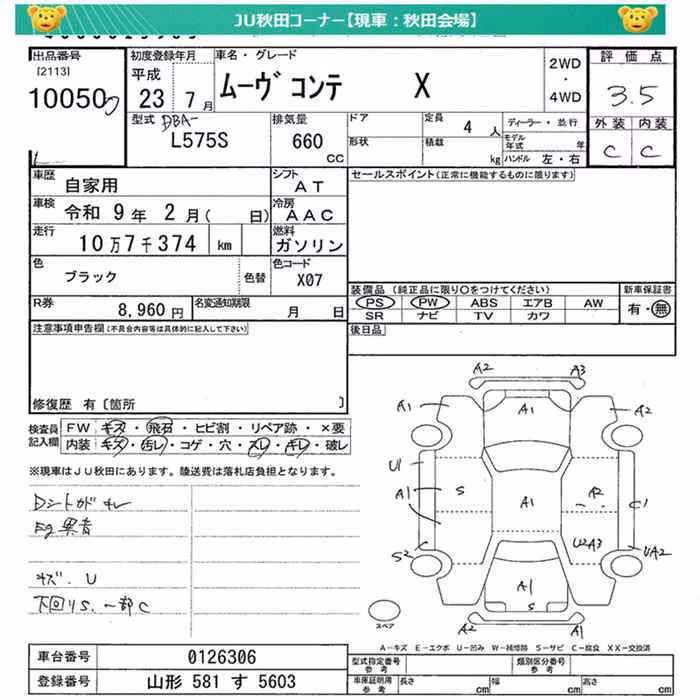 JU秋田コーナー【現車：秋田会場】
出品番号
[2113]
10050
初度登録年月
平成
23 7月
車名・グレード
ムーヴ コンテ X
2WD
・
4WD
評価点
3.5
外装 内装
C C
型式 DBA-
L575S
排気量
660
CC
ドア
形状
定員 4 人
積載 kg
ディーラー・並行
モデル年式 年
ハンドル 左・右
車歴 自家用
シフト AT
車検 令和 9年 2月( 日)
冷房 AAC
走行 10万7千374 km
燃料 ガソリン
色 ブラック 色替
色コード X07
R券 8,960円
名変通知期限 月 日
セールスポイント(正常に機能するものに限ります)
装備品 (純正品に限り○をつけてください)
PS PW ABS エアB AW
SR ナビ TV カワ
新車保証書
有・無
後日品
注意事項申告欄(不具合内容等は具体的に記入して下さい)
修復歴 有〔箇所 〕
検査員記入欄
FW キズ・飛石・ヒビ割・リペア跡・×要
内装 キズ・汚レ・コゲ・穴・スレ・キレ・破レ
※現車はJU秋田にあります。陸送費は落札店負担となります。
Eg異音
キズ.U
下回りS.一部C
A2 A3
A1 A1 A2
U1
A1 S A1 A2 C1
S2 C U2A3 UA2
A1
S
A2 A1
スペア
A－キズ E－エクボ U－凹み W－補修跡 S－サビ C－腐食 XX－交換済
車台番号 0126306
登録番号 山形 581 す 5603
型式指定番号
参考
類別区分番号
参考
車庫証明用
参考
長さ cm 幅 cm 高さ cm